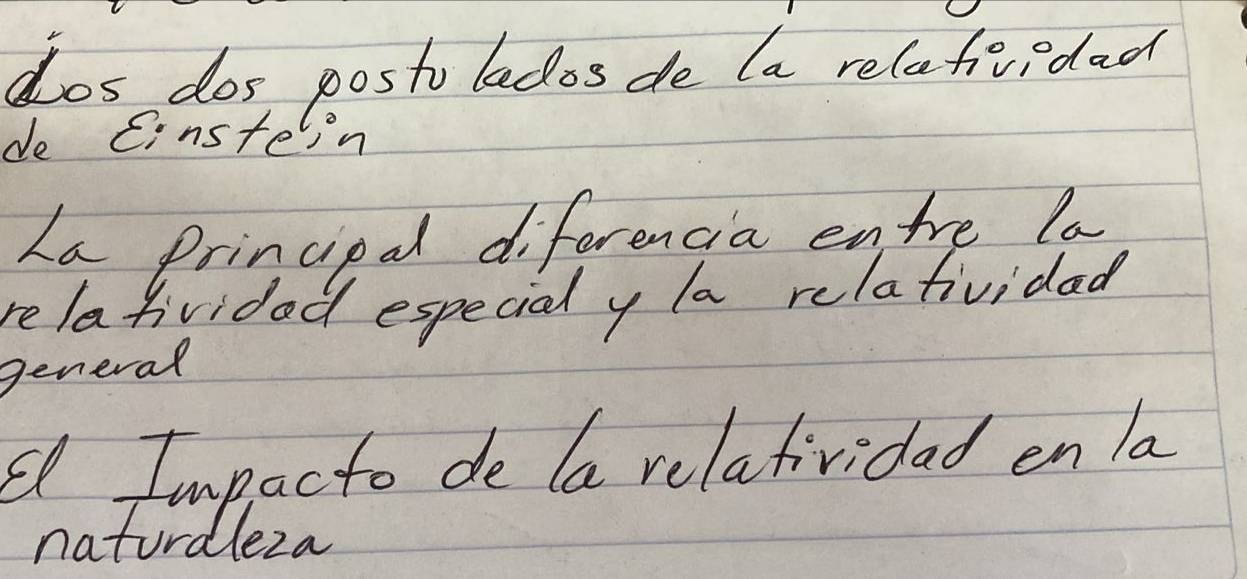 Los dos postulados de la relatividad
de Einstein
La principal diferencia entre la
relatividad especial y la relatividad
general
El Impacto de la relatividad en la
naturaleza